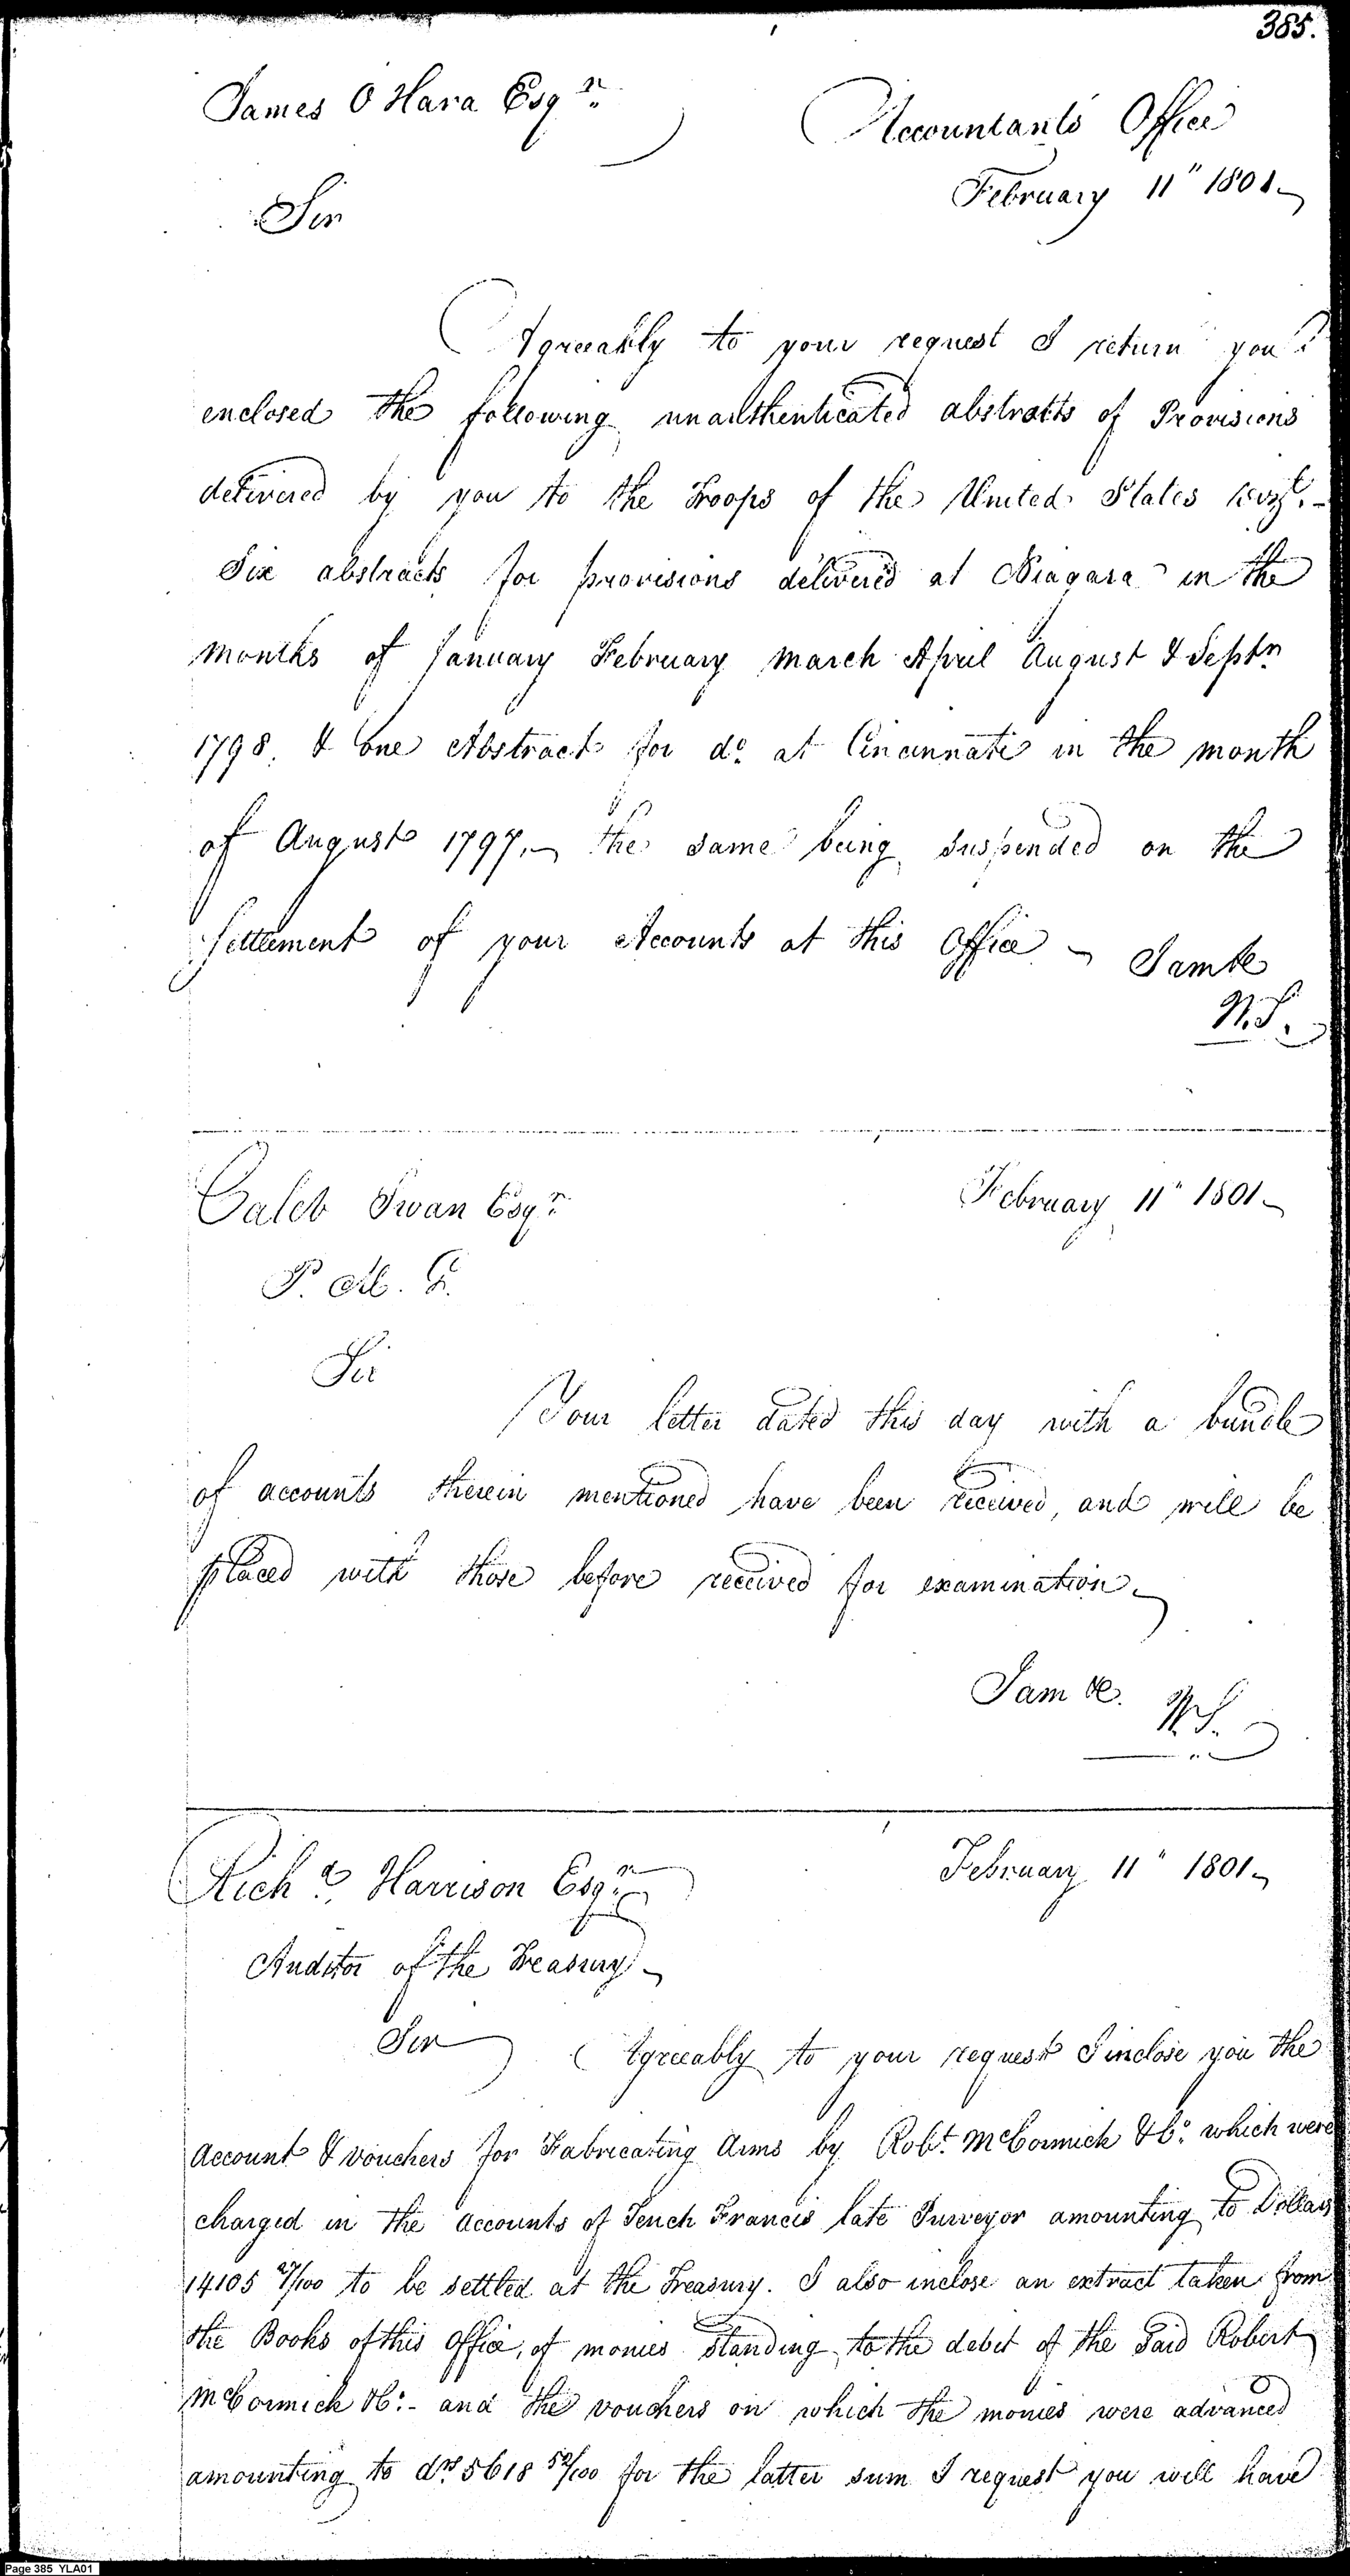 385.
James O Hara Esqr.
Accountants Office
February 11" 1801
Sir
Agreeably to your request I return you
enclosed the following unauthenticated abstracts of Provisions
delivered by you to the Troops of the United States
Six abstracts for provisions delivered at Niagara in the
months of January February March April August & Septr
1798. & one Abstract for do. at Cincinnati in the month
of August 1797, the same being suspended on the
settlement of your Accounts at this Office I am &c
W.S.
Caleb Swan Esqr.
February 11" 1801
P. M. G.
Sir
Your letter dated this day with a bundle
of accounts therein mentioned have been received, and will be
placed with those before received for examination.
I am &c.
W.S.
Richd. Harrison Esqr.
February 11" 1801
Auditor of the Treasury
Sir
Agreeably to your request I inclose you the
account & vouchers for Fabricating Arms by Robt. McCormick & Co. which were
charged in the accounts of Tench Francis late Purveyor amounting to Dollars
14105 27/100 to be settled at the Treasury. I also inclose an extract taken from
the Books of this Office, of monies standing to the debit of the said Robert
McCormick & Co. - and the vouchers on which the monies were advanced
amounting to drs. 5618 52/100 for the latter sum I request you will have
Page 385 YLA01